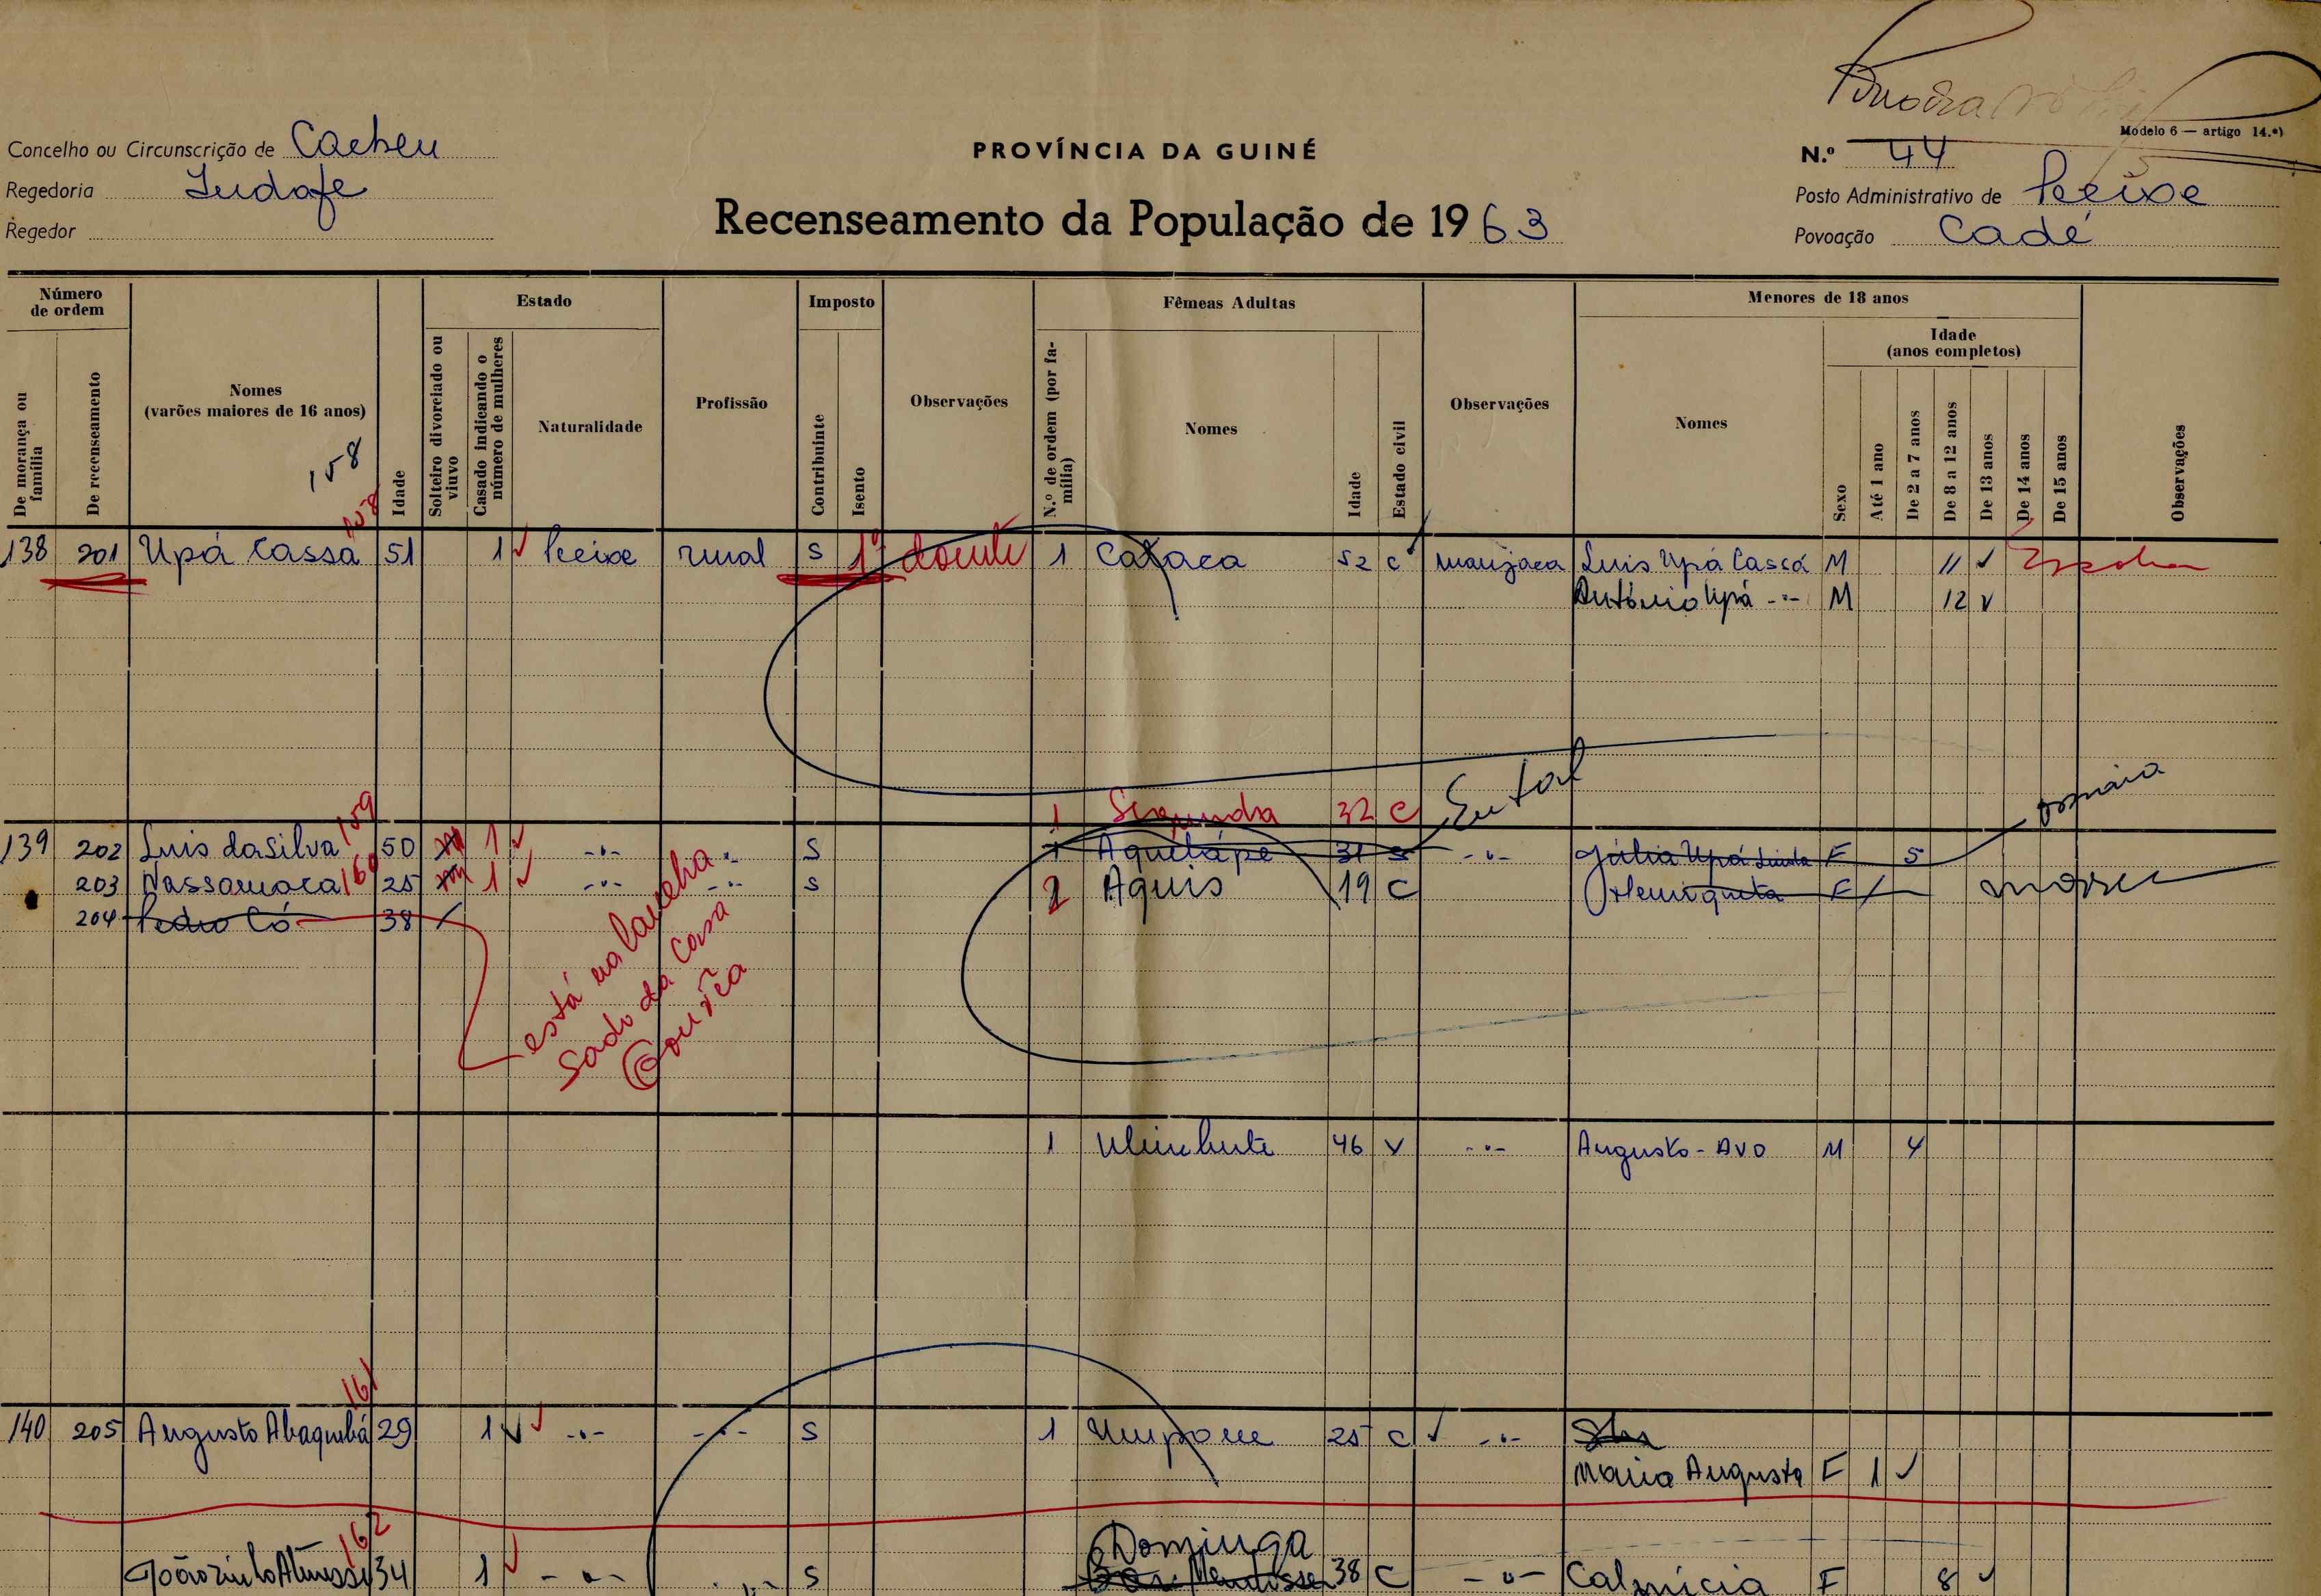 Modelo 6 — artigo 14.º)
Concelho ou Circunscrição de Cacheu
PROVÍNCIA DA GUINÉ
N.º 44
Regedoria
Recenseamento da População de 1963
Posto Administrativo de Pecixe
Regedor
Povoação Cadé
Número de ordem
De morança ou família
De recenseamento
Nomes (varões maiores de 16 anos)
158
158
Idade
Estado
Solteiro divorciado ou viuvo
Casado indicando o número de mulheres
Naturalidade
Profissão
Imposto
Contribuinte
Isento
Observações
Fêmeas Adultas
N.º de ordem (por família)
Nomes
Idade
Estado civil
Observações
Menores de 18 anos
Nomes
Sexo
Idade (anos completos)
Até 1 ano
De 2 a 7 anos
De 8 a 12 anos
De 13 anos
De 14 anos
De 15 anos
Observações
138 201 Upá Cassá 51 1 Pecixe rural S 1 doente 1 Cataca 52 C manjaca Luis Upá Cassá M 11
António Upá -"- M 12
1 Segunda 32 C
159
139 202 Luis da Silva 50 1 -"- -"- S 1 Aquelápe 31 -"- Júlia Upá F 5
203 Nassamaca 160 25 1 -"- -"- S 2 Aquis 19 C Henriqueta F
204 Pedro Có 38
está na
da casa
1 46 V -"- Augusto - Avo M 4
161
140 205 Augusto Abaquebá 29 1 -"- -"- S 1 Umpone 25 C -"-
Maria Augusta F 1
162
Dominga
34 1 -"- -"- S 38 C -"- F 8